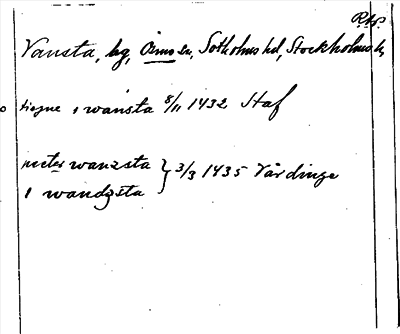 RAp
Vansta, by, Ösmo sn, Sotholms hd, Stockholms l,
o tiegne i wansta 8/11 1432 Staf
peter wanzsta } 3/3 1435 Vårdinge
i wandzsta